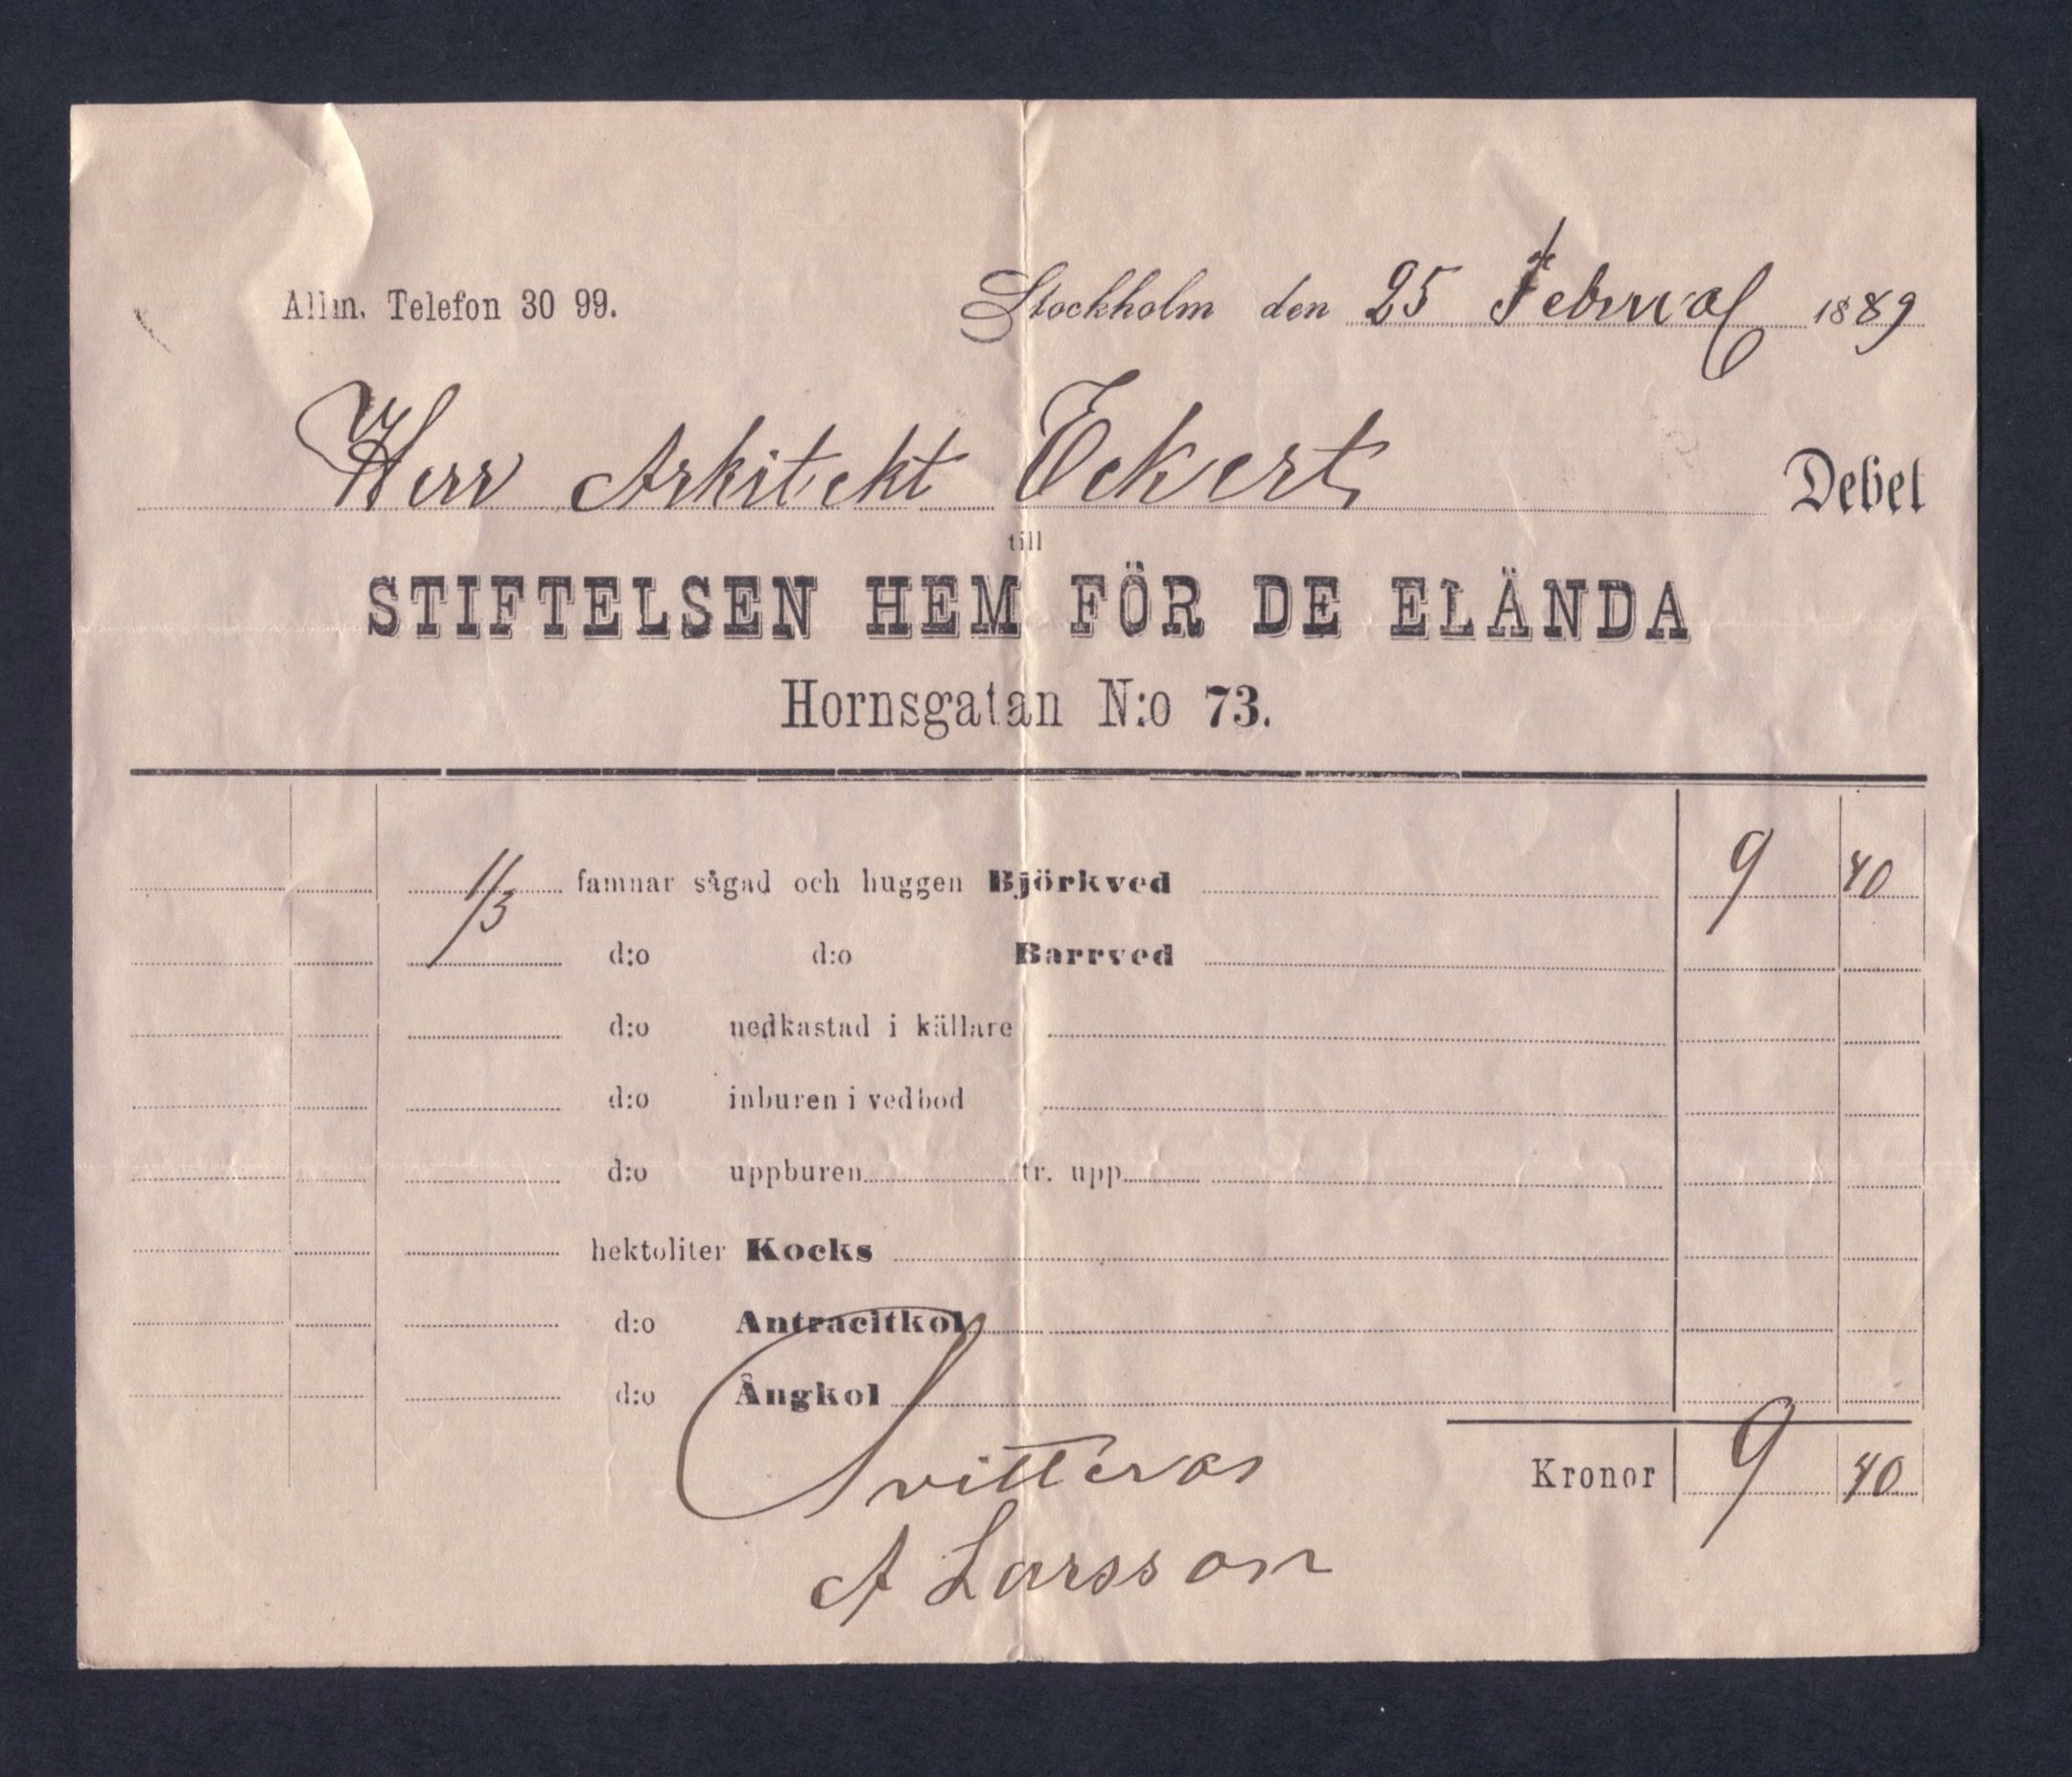 Allm. Telefon 30 99.
Stockholm den 25 Februari 1889
Herr Arkitekt Eckert Debet
till
STIFTELSEN HEM FÖR DE ELÄNDA
Hornsgatan N:o 73.
1/3 famnar sågad och huggen Björkved 9 40
d:o d:o Barrved
d:o nedkastad i källare
d:o inburen i vedbod
d:o uppburen tr. upp
hektoliter Kocks
d:o Antracitkol
d:o Ångkol
Kronor 9 40
Qvitteras
A Larsson